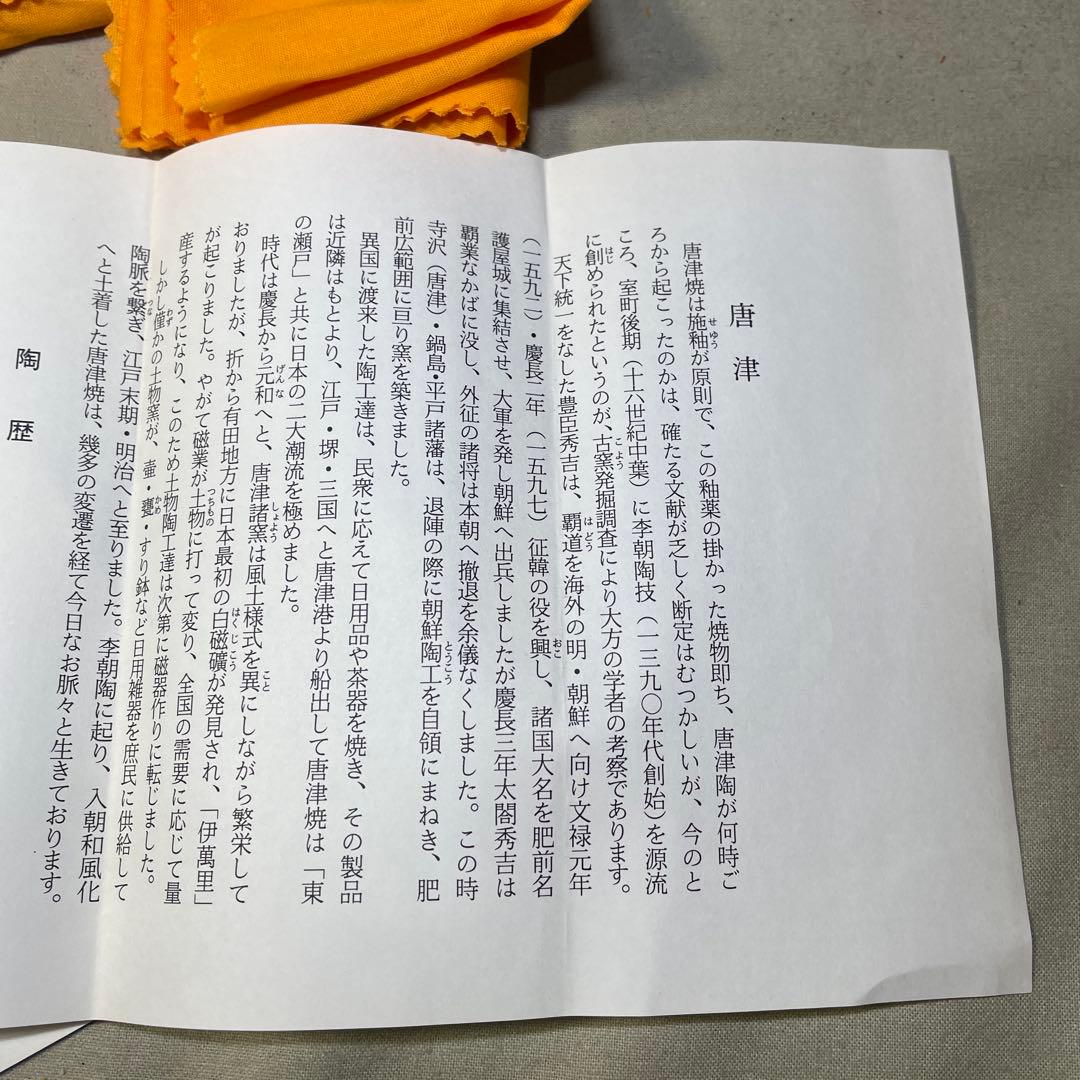 唐津
唐津焼は施釉が原則で、この釉薬の掛かった焼物即ち、唐津陶が何時ご
ろから起こったのかは、確たる文献が乏しく断定はむつかしいが、今のと
ころ、室町後期（十六世紀中葉）に李朝陶技（一三九〇年代創始）を源流
に創められたというのが、古窯発掘調査により大方の学者の考察であります。
天下統一をなした豊臣秀吉は、覇道を海外の明・朝鮮へ向け文禄元年
（一五九二）・慶長二年（一五九七）征韓の役を興し、諸国大名を肥前名
護屋城に集結させ、大軍を発し朝鮮へ出兵しましたが慶長三年太閤秀吉は
覇業なかばに没し、外征の諸将は本朝へ撤退を余儀なくしました。この時
寺沢（唐津）・鍋島・平戸諸藩は、退陣の際に朝鮮陶工を自領にまねき、肥
前広範囲に亘り窯を築きました。
異国に渡来した陶工達は、民衆に応えて日用品や茶器を焼き、その製品
は近隣はもとより、江戸・堺・三国へと唐津港より船出して唐津焼は「東
の瀬戸」と共に日本の二大潮流を極めました。
時代は慶長から元和へと、唐津諸窯は風土様式を異にしながら繁栄して
おりましたが、折から有田地方に日本最初の白磁礦が発見され、「伊萬里」
が起こりました。やがて磁業が土物に打って変り、全国の需要に応じて量
産するようになり、このため土物陶工達は次第に磁器作りに転じました。
しかし僅かの土物窯が、壷・甕・すり鉢など日用雑器を庶民に供給して
陶脈を繋ぎ、江戸末期・明治へと至りました。李朝陶に起り、入朝和風化
へと土着した唐津焼は、幾多の変遷を経て今日なお脈々と生きております。
陶歴